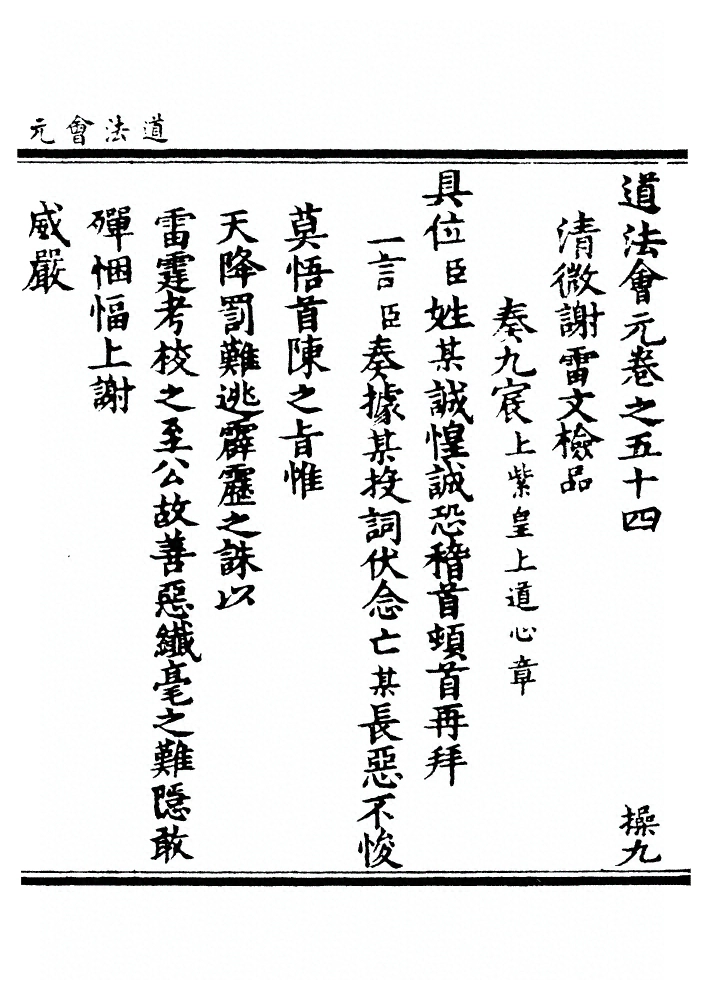 道法會元
道法會元卷之五十四 操九
清微謝雷文檢品
奏九宸上紫皇上道心章
具位臣姓某誠惶誠恐稽首頓首再拜
一言臣奏據某投詞伏念亡某長惡不悛
莫悟首陳之旨惟
天降罰難逃霹靂之誅以
雷霆考校之至公故善惡纖毫之難隱敢
殫悃愊上謝
威嚴